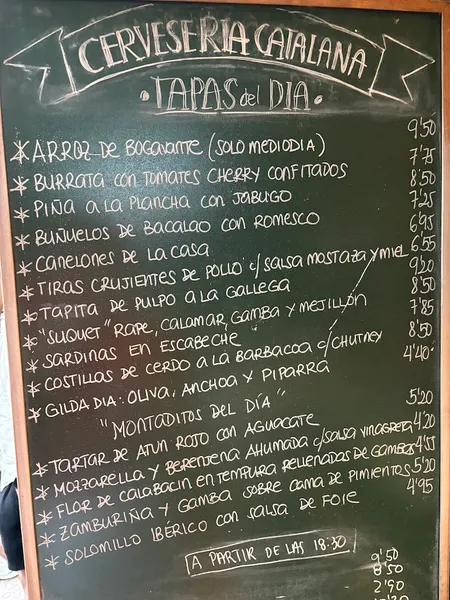 CERVESERIA CATALANA
·TAPAS del DIA·
* ARROZ DE BOGAVANTE (SOLO MEDIODIA) 9'50
* BURRATA CON TOMATES CHERRY CONFITADOS 7'75
* PIÑA A LA PLANCHA CON JABUGO 8'50
* BUÑUELOS DE BACALAO CON ROMESCO 7'25
* CANELONES DE LA CASA 6'95
* TIRAS CRUJIENTES DE POLLO c/SALSA MOSTAZA Y MIEL 6'55
* TAPITA DE PULPO A LA GALLEGA 9'20
* "SUQUET" RAPE, CALAMAR, GAMBA Y MEJILLÓN 8'50
* SARDINAS EN ESCABECHE 7'85
* COSTILLAS DE CERDO A LA BARBACOA c/CHUTNEY 8'50
* GILDA DIA: OLIVA, ANCHOA Y PIPARRA 4'40
"MONTADITOS DEL DÍA"
* TARTAR DE ATUN ROJO CON AGUACATE 5'20
* MOZZARELLA Y BERENJENA AHUMADA c/SALSA VINAGRETA 4'20
* FLOR DE CALABACIN EN TEMPURA RELLENADAS DE GAMBAS 4'55
* ZAMBURIÑA Y GAMBA SOBRE CAMA DE PIMIENTOS 5'20
* SOLOMILLO IBÉRICO CON SALSA DE FOIE 4'95
A PARTIR DE LAS 18:30
9'50
8'50
2'90